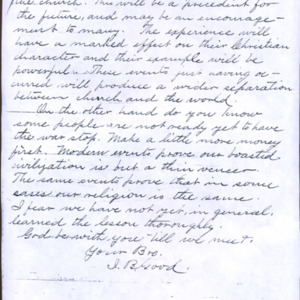 the church. This will be a precedent for
the future, and may be an encourage-
ment to many. The experience will
have a marked effect on their Christian
character and their example will be
powerful. These events just having oc-
curred will produce a wider separation
between church and the world.
On the other hand do you know
some people are not ready yet to have
the war stop. Make a little more money
first. Modern events prove our boasted
civilization is but a thin veneer.
The same events prove that in some
cases our religion is the same.
I fear we have not yet, in general,
learned the lesson thoroughly.
God be with you till we meet.
Your Bro.
I. B. Good.